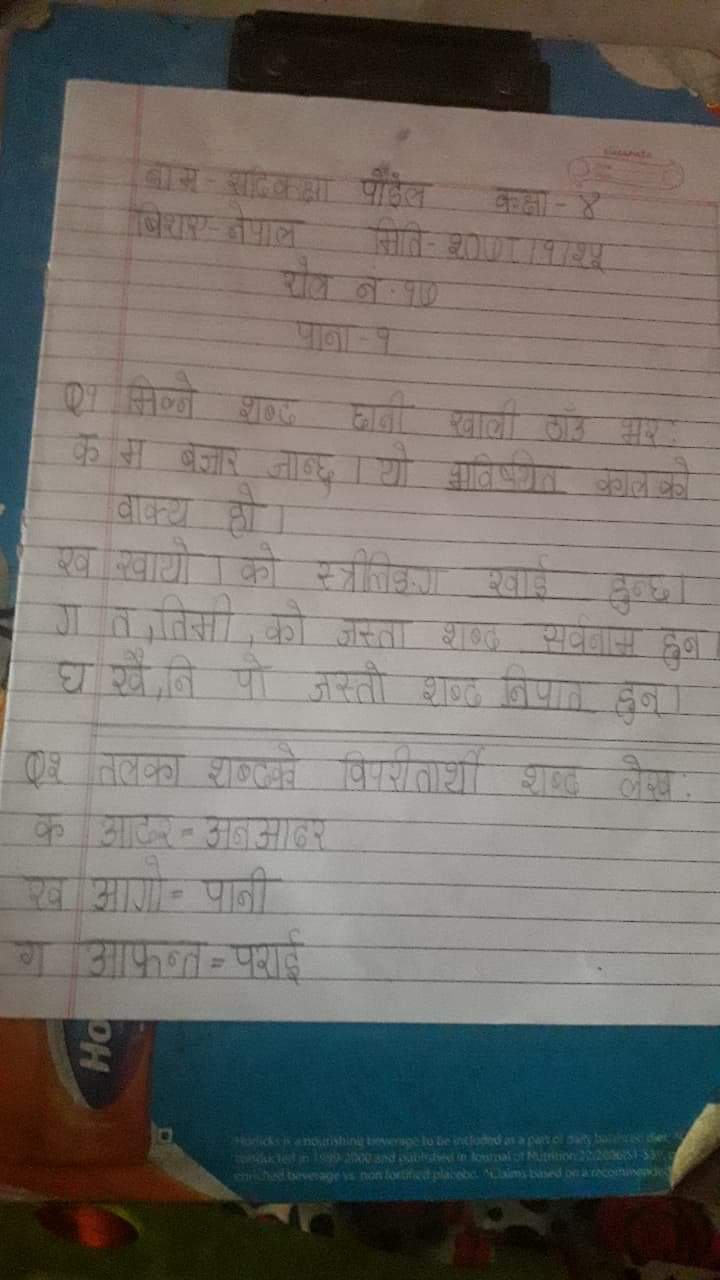 classmate
नाम - पौडेल कक्षा - ४
मिति- २०७८।१।२५
रोल नं. १७
पाना - १
Q१ मिल्ने शब्द छानी खाली ठाँउ भर:
क म बजार जान्छु । यो भविष्यत कालको
वाक्य हो ।
ख खायो । को स्त्रीलिङ्ग खाई हुन्छ ।
ग त, तिमी, को जस्ता शब्द सर्वनाम हुन ।
घ खै, नि पो जस्तो शब्द निपात हुन् ।
Q२ तलका शब्दको विपरीतार्थी शब्द लेख:
क आदर = अनआदर
ख आगो = पानी
ग आफन्त = पराई
Ho
Horlicks is a nourishing beverage to be included as a part of daily balanced diet.
conducted in 1999-2000 and published in Journal of Nutrition 22:2006(S1-S39,
enriched beverage vs. non fortified placebo. *Claims based on a recommended